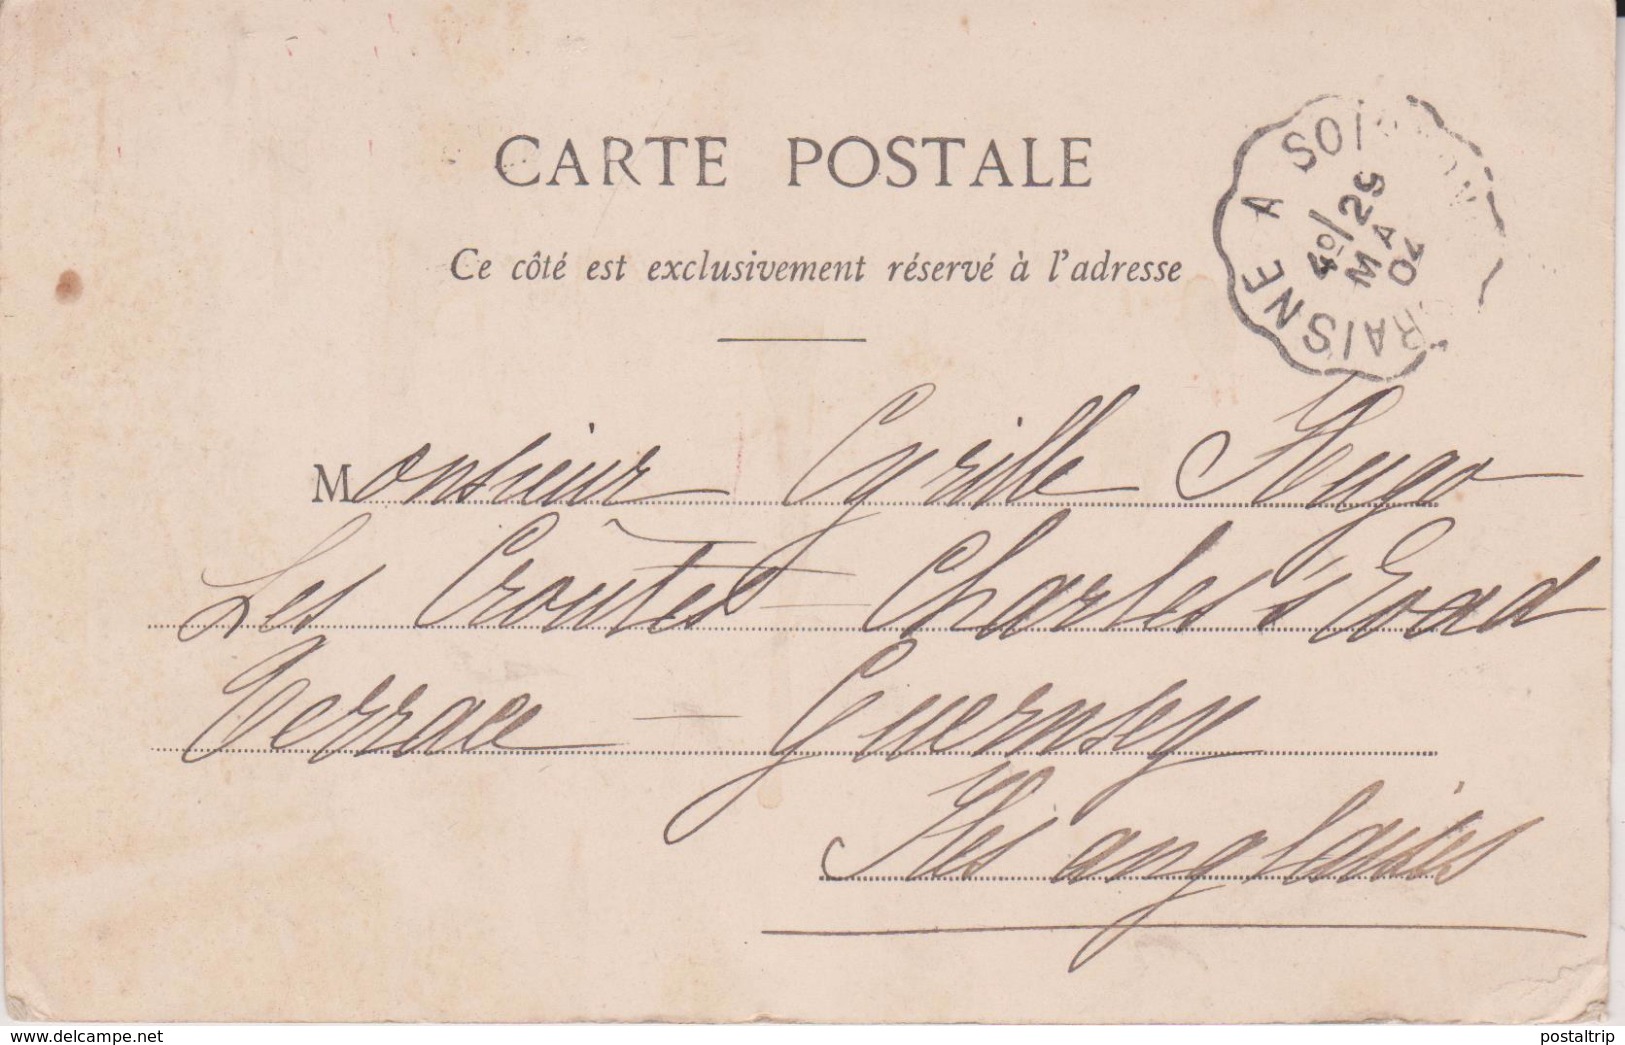 CARTE POSTALE
Ce côté est exclusivement réservé à l'adresse
BRAISNE A SOISSONS
4º/29
MA
04
Monsieur Cyrille Hugo
Les Croûtes — Charles's Road
Terrace — Guernsey
Iles anglaises
www.delcampe.net
postaltrip